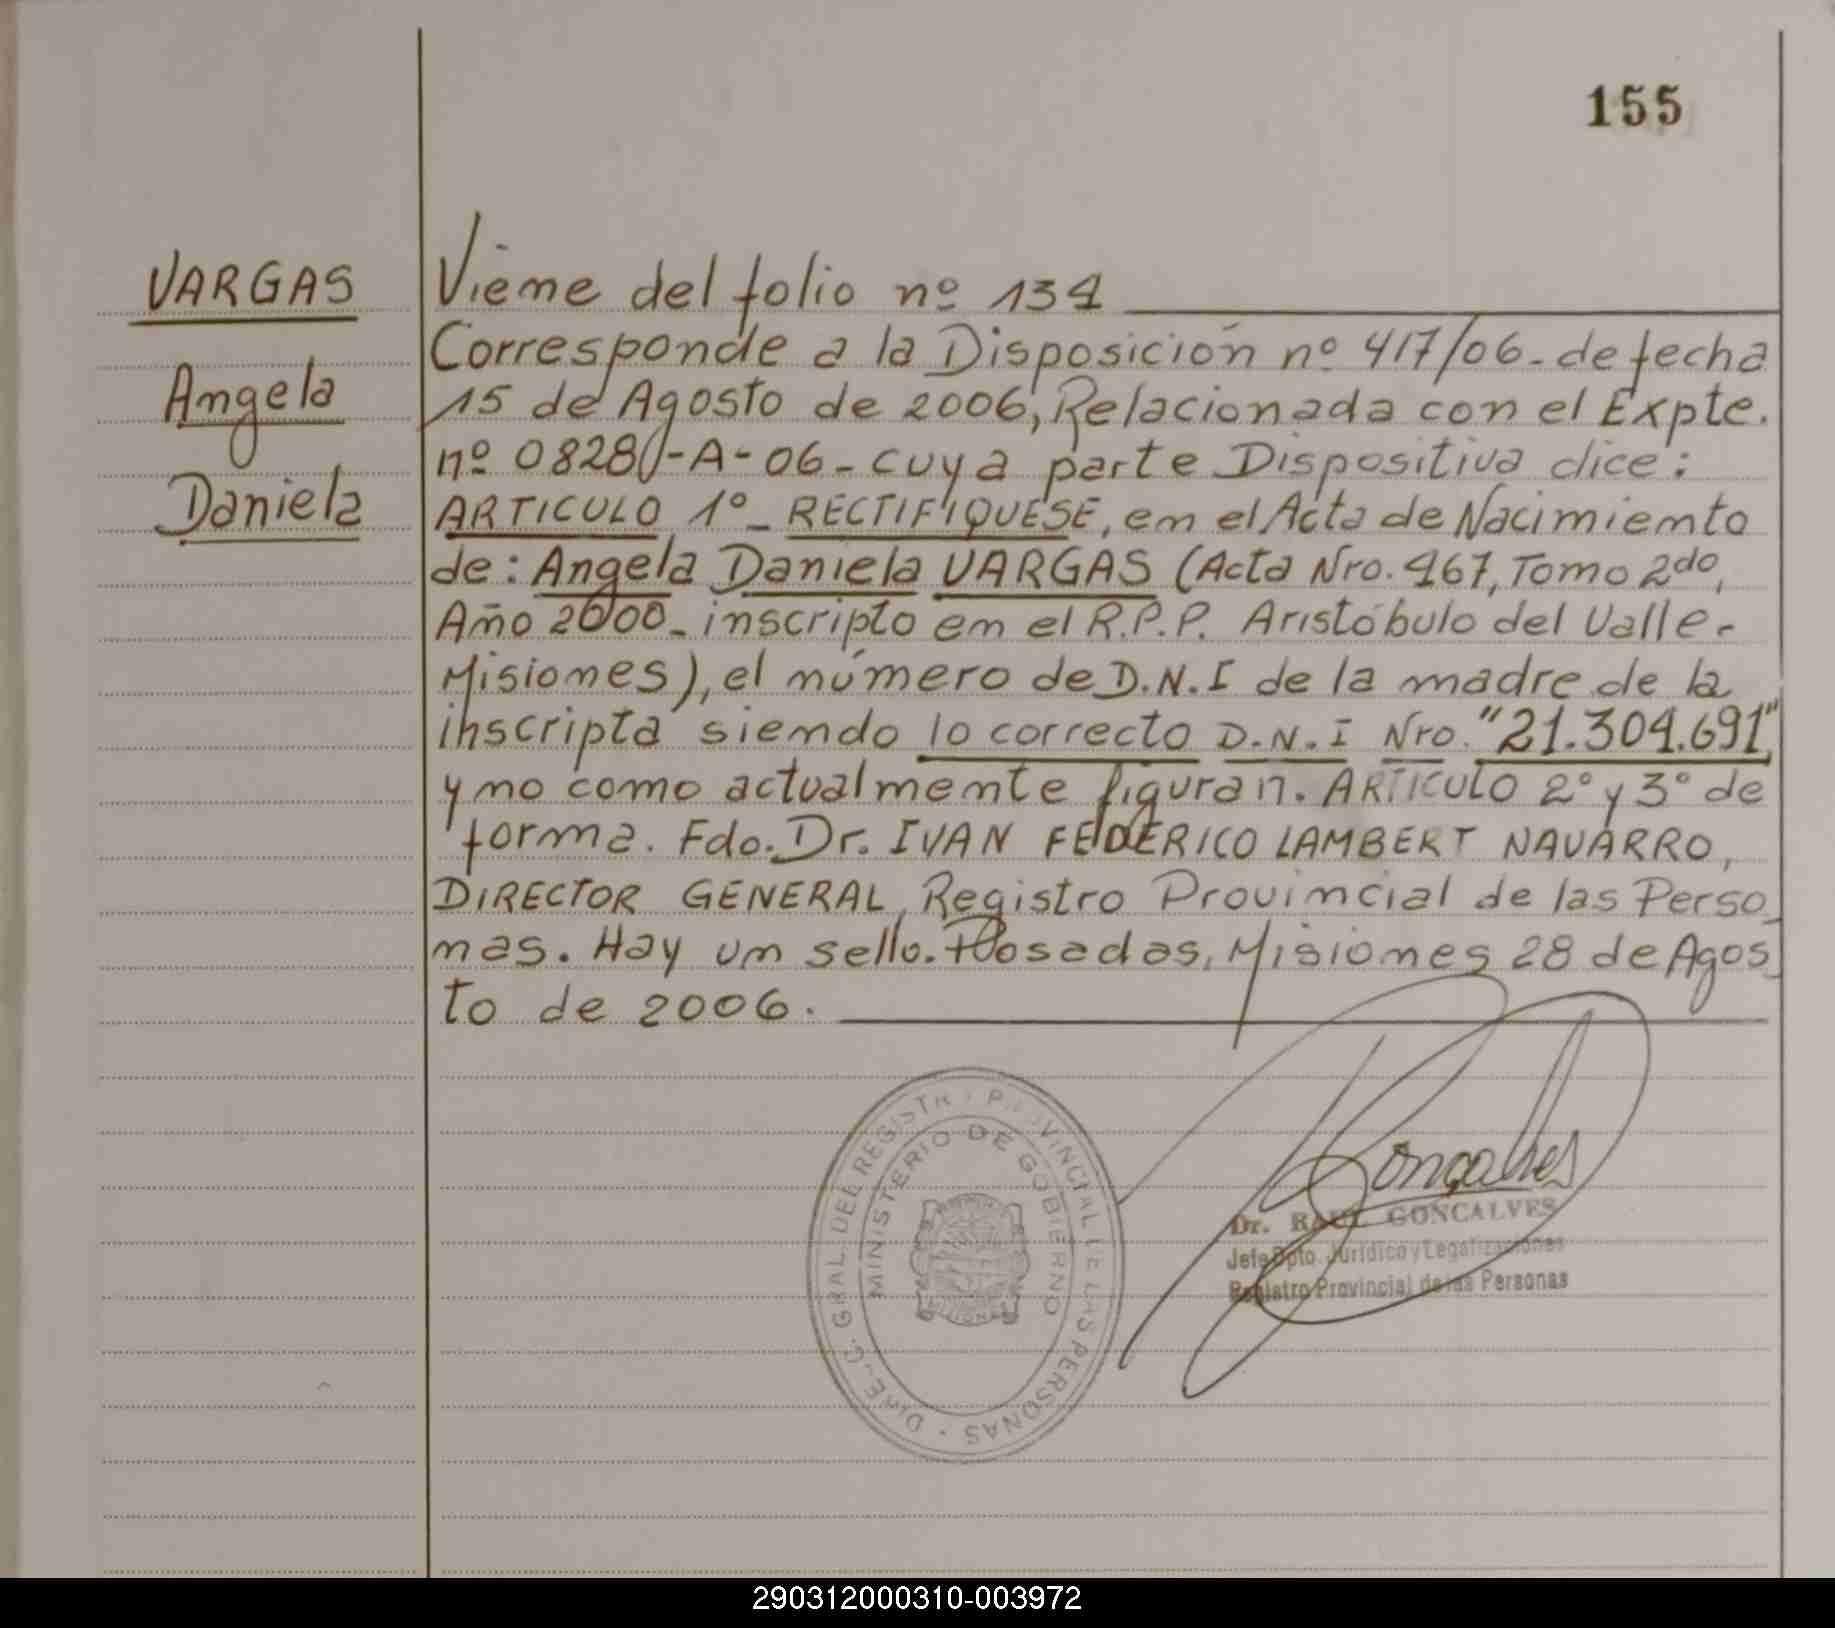 155
VARGAS
Angela
Daniela
Viene del folio nº 134
Corresponde a la Disposición nº 417/06-de fecha
15 de Agosto de 2006, Relacionada con el Expte.
nº 0828-A-06-cuya parte Dispositiva dice:
ARTICULO 1º- RECTIFIQUESE, en el Acta de Nacimiento
de: Angela Daniela VARGAS (Acta Nro. 467, Tomo 2do,
Año 2000- inscripto en el R.P.P. Aristóbulo del Valle-
Misiones), el número de D.N.I de la madre de la
inscripta siendo lo correcto D.N.I Nro. "21.304.691",
y no como actualmente figuran. ARTICULO 2º y 3º de
forma. Fdo. Dr. IVAN FEDERICO LAMBERT NAVARRO,
DIRECTOR GENERAL, Registro Provincial de las Perso_
nas. Hay un sello. Posadas, Misiones 28 de Agos_
to de 2006.
DIREC. GRAL. DEL REGISTRO PROVINCIAL DE LAS PERSONAS
MINISTERIO DE GOBIERNO
MISIONES
Goncalves
Dr. RAUL GONCALVES
Jefe Dpto. Jurídico y Legalizaciones
Registro Provincial de las Personas
290312000310-003972